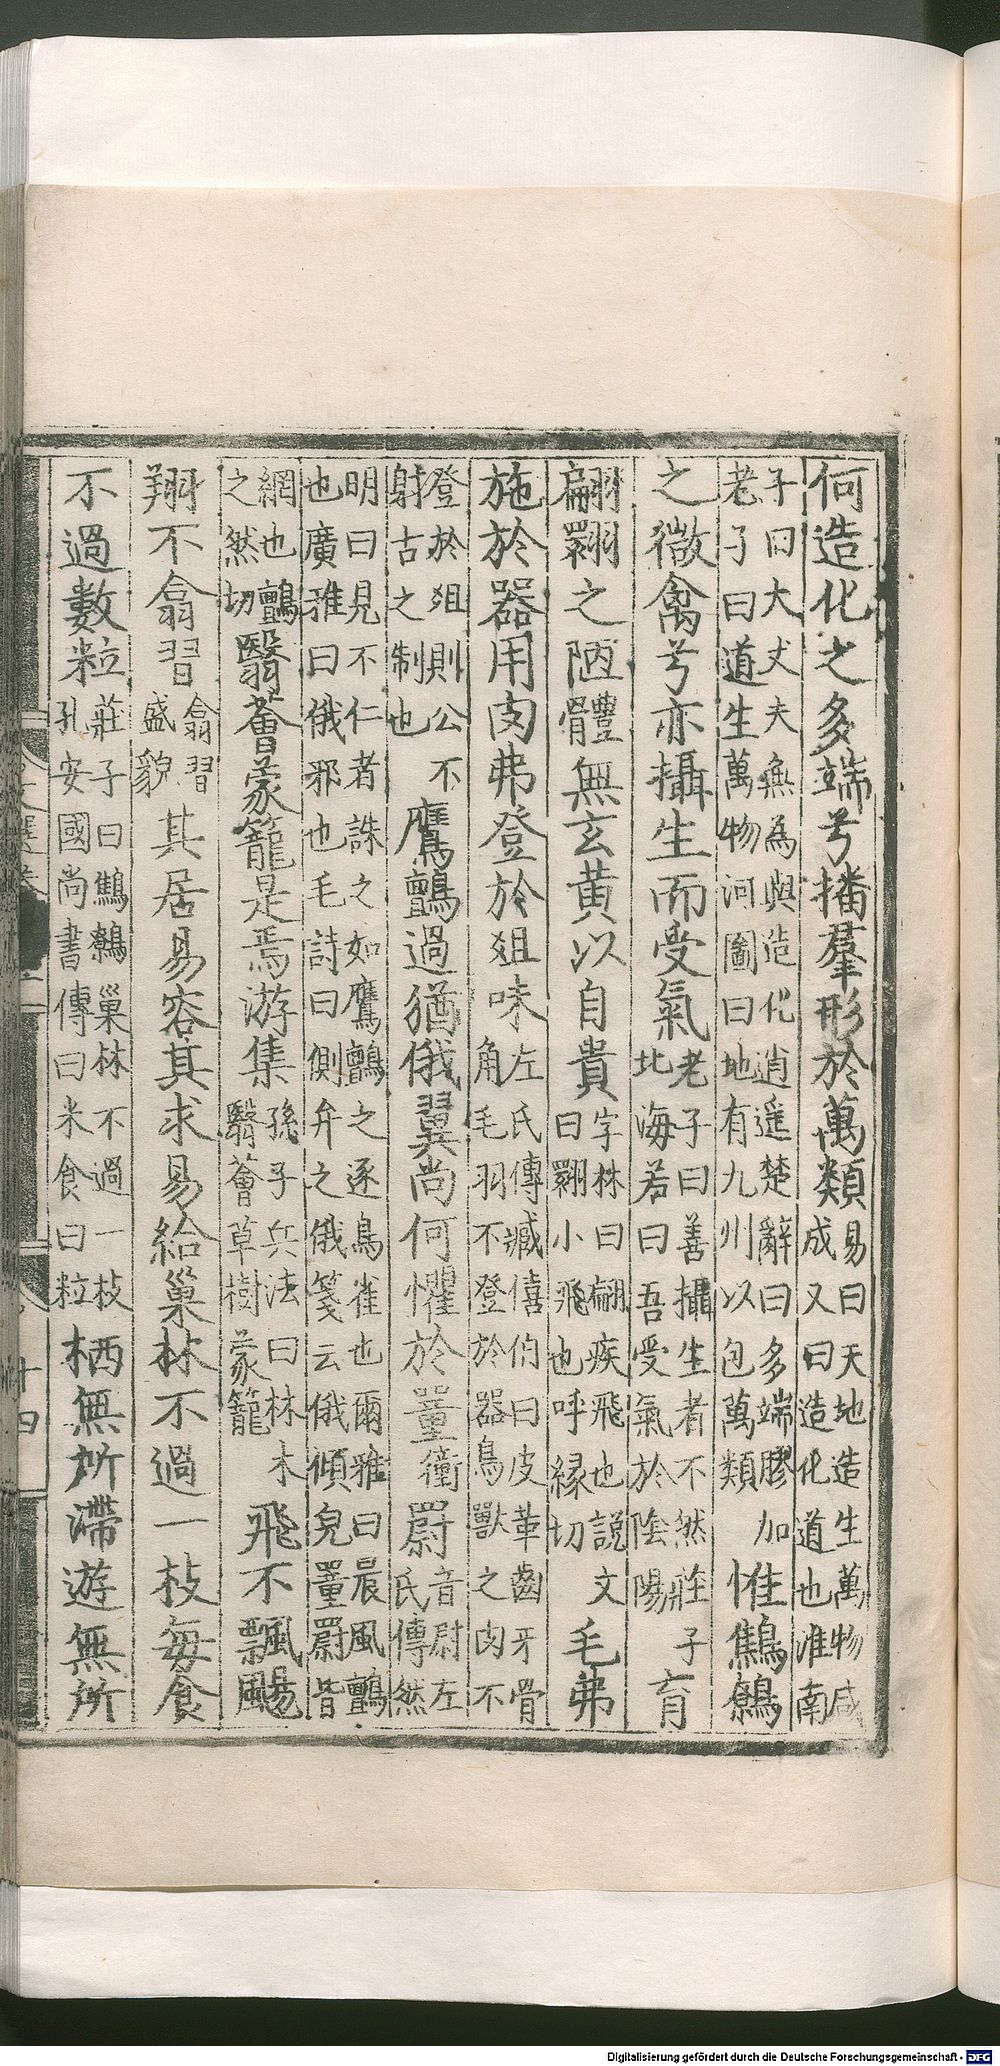 何造化之多端兮播羣形於萬類易曰天地造生萬物咸成又曰造化道也淮南
子曰大丈夫無為與造化逍遥楚辭曰多端膠加老子曰道生萬物河圖曰地有九州以包萬類惟鷦鷯
之微禽兮亦攝生而受氣老子曰善攝生者不然莊子北海若曰吾受氣於陰陽育
翩翾之陋體無玄黃以自貴字林曰翩疾飛也說文曰翾小飛也呼縁切毛弗
施於器用肉弗登於俎味左氏傳臧僖伯曰皮革齒牙骨角毛羽不登於器鳥獸之肉不
登於俎則公不射古之制也鷹鸇過猶俄翼尚何懼於罿衝罻音尉左氏傳然
明曰見不仁者誅之如鷹鸇之逐鳥雀也爾雅曰晨風鸇也廣雅曰俄邪也毛詩曰側弁之俄箋云俄傾皃罿罻皆
網也鸇之然切翳薈蒙籠是焉游集孫子兵法曰林木翳薈草樹蒙籠飛不飄颺
翔不翕習翕習盛貌其居易容其求易給巢林不過一枝每食
不過數粒莊子曰鷦鷯巢林不過一枝孔安國尚書傳曰米食曰粒栖無所滯遊無所
十四
Digitalisierung gefördert durch die Deutsche Forschungsgemeinschaft - DFG